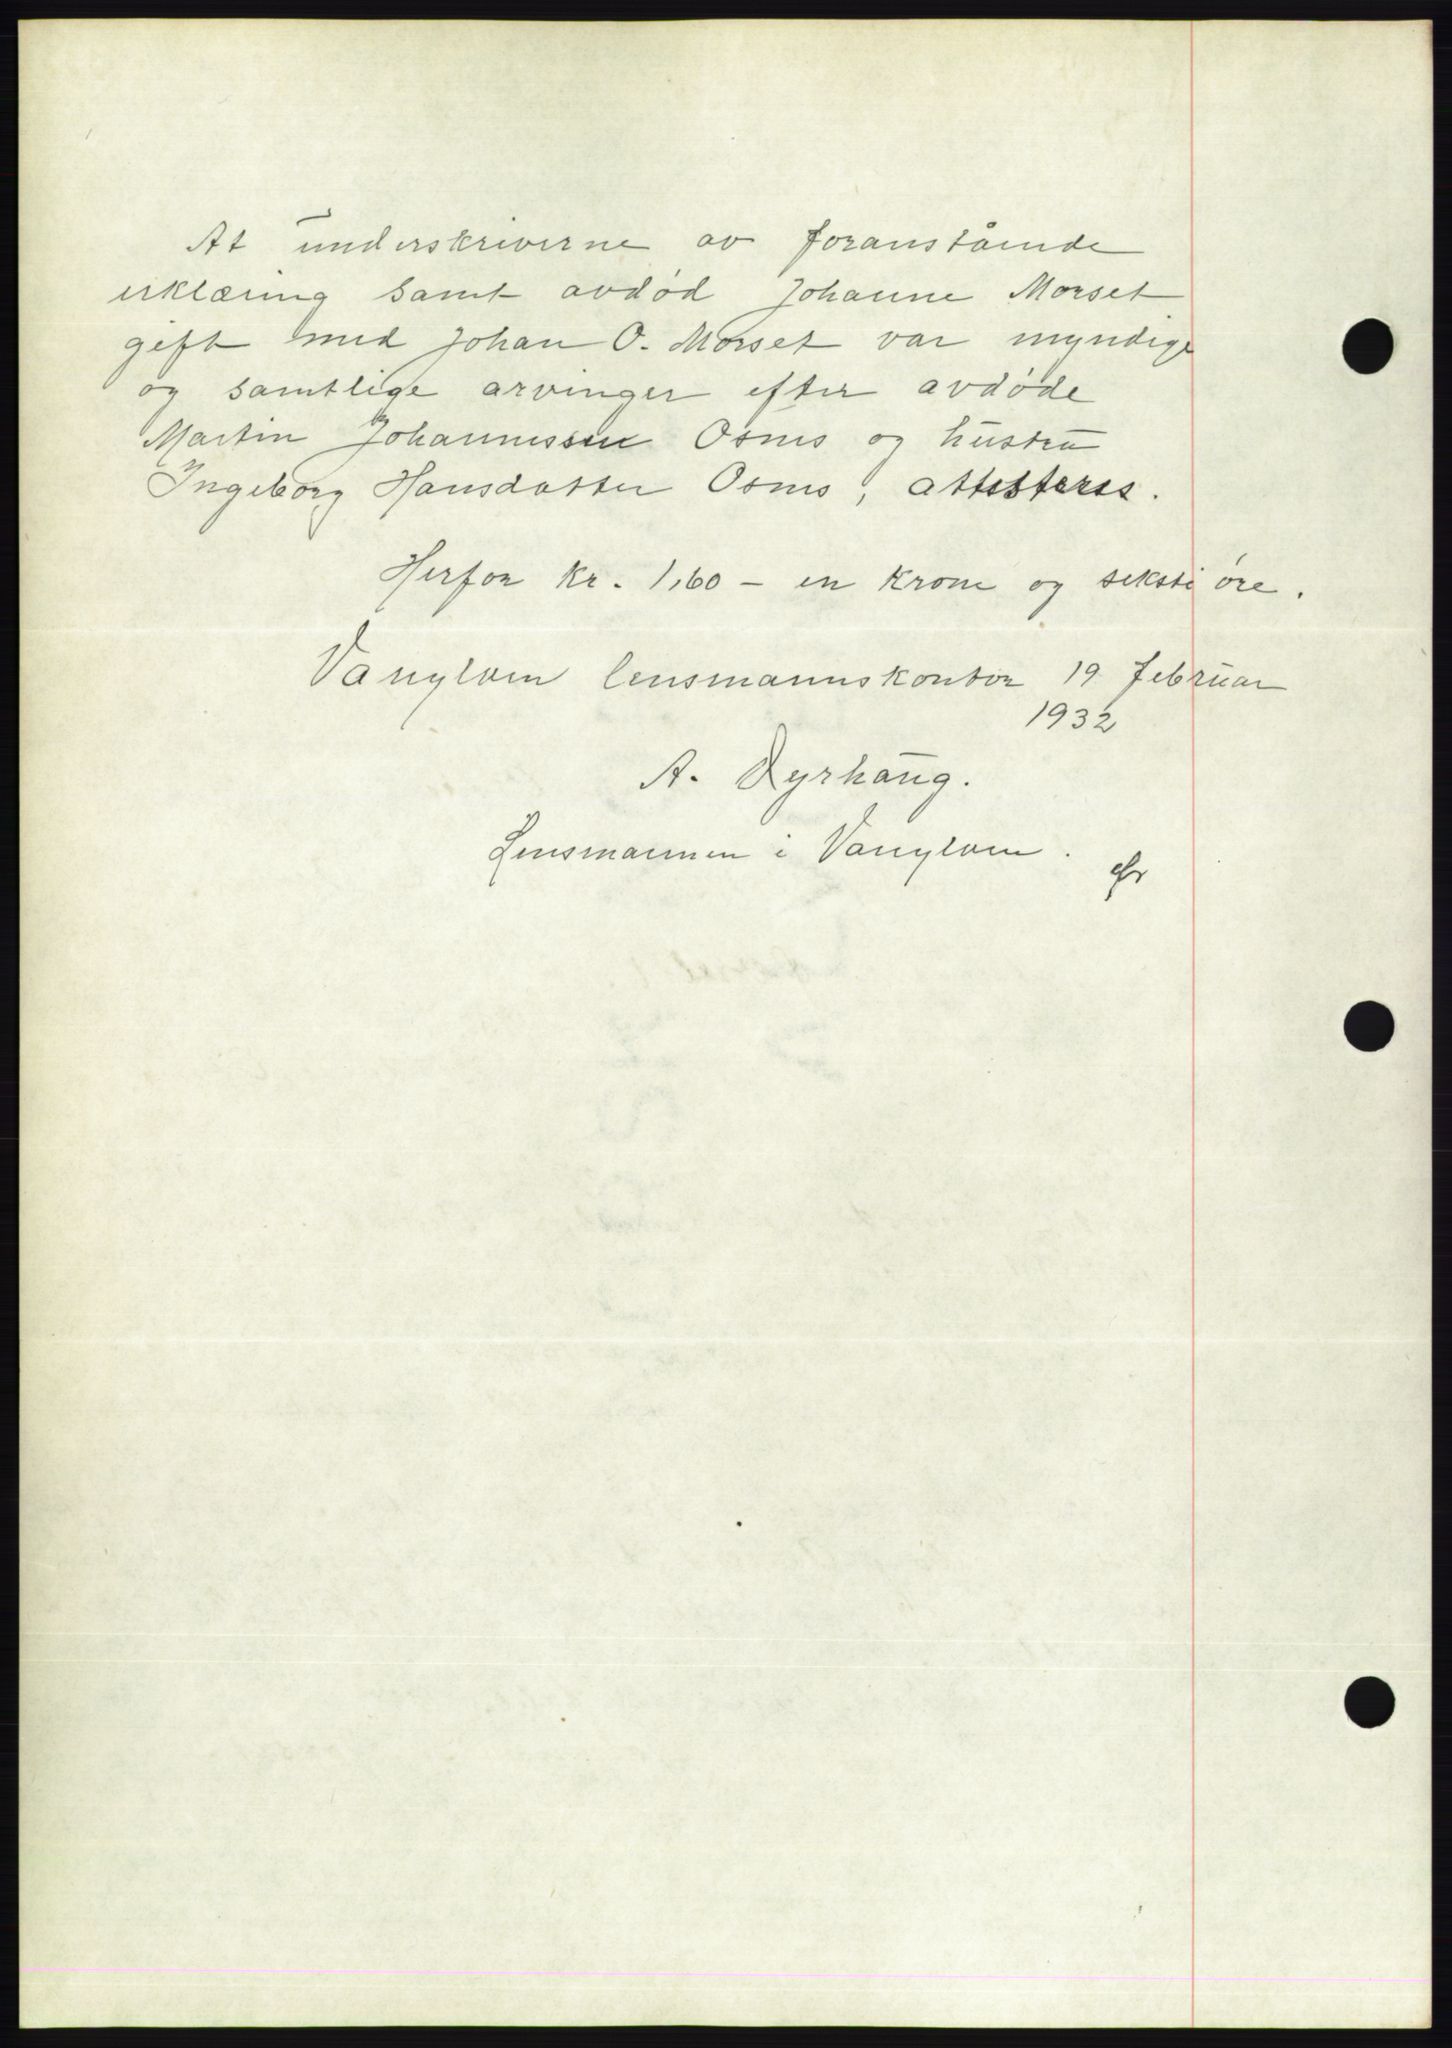 At underskriverne av foranstående
erklæring samt avdød Johanne Morset
gift med Johan O. Morset var myndige
og samtlige arvinger efter avdøde
Martin Johannessen Osnes og hustru
Ingeborg Hansdatter Osnes, attesteres.
Herfor kr. 1,60 - en krone og seksti øre.
Vanylven lensmannskontor 19 februar
1932
A. Dyrhaug.
Lensmannen i Vanylven.